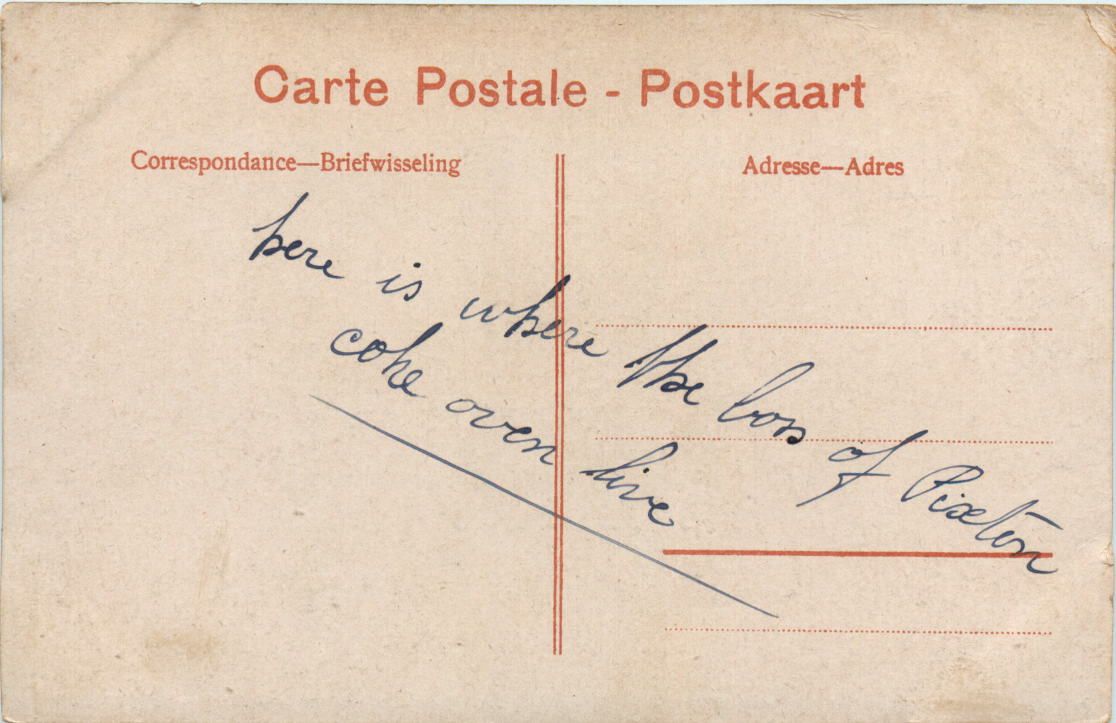 Carte Postale - Postkaart
Correspondance—Briefwisseling
Adresse—Adres
here is where the boss of Pixton
coke oven live